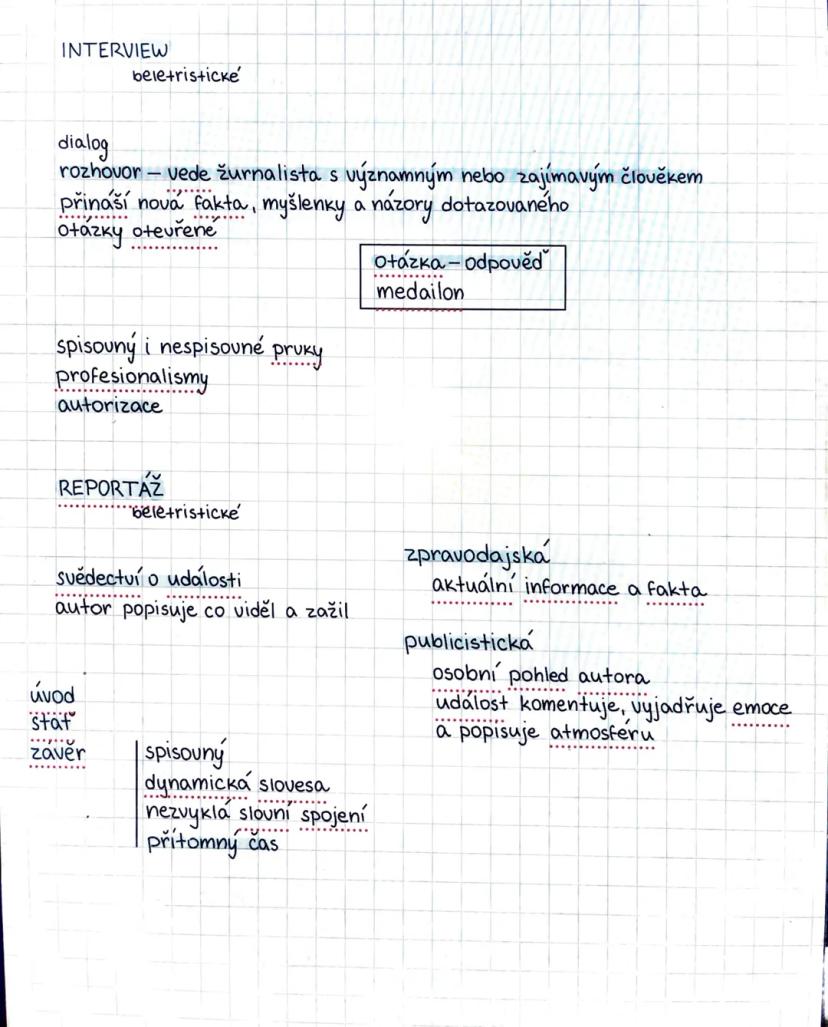 INTERVIEW
beletristické
dialog
rozhovor – vede žurnalista s významným nebo zajímavým člověkem
přináší nová fakta, myšlenky a názory dotazovaného
otázky otevřené
otázka – odpověď
medailon
spisovný i nespisovné prvky
profesionalismy
autorizace
REPORTÁŽ
beletristické
svědectví o události
autor popisuje co viděl a zažil
zpravodajská
aktuální informace a fakta
publicistická
osobní pohled autora
událost komentuje, vyjadřuje emoce
a popisuje atmosféru
úvod
stať
závěr
spisovný
dynamická slovesa
nezvyklá slovní spojení
přítomný čas